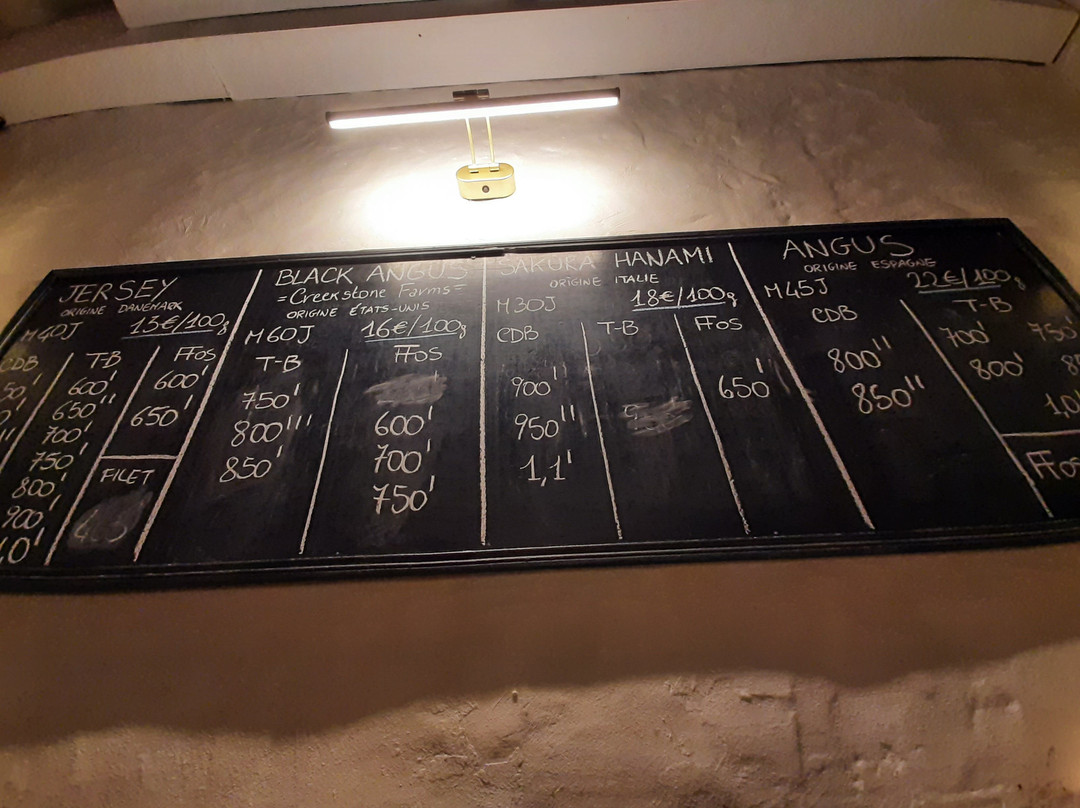 JERSEY
ORIGINE DANEMARK
M40J 15€/100g
CDB
T-B
600'
650''
700'
750'
800'
900'
FFOS
600'
650'
FILET
BLACK ANGUS
=Creekstone Farms=
ORIGINE ÉTATS-UNIS
M60J 16€/100g
T-B
750'
800'''
850'
FFOS
600'
700'
750'
SAKURA HANAMI
ORIGINE ITALIE
M30J 18€/100g
CDB
900''
950''
1,1'
T-B
FFOS
650'
ANGUS
ORIGINE ESPAGNE
M45J 22€/100g
CDB
800''
850''
T-B
700' 750'
800'
FFOS